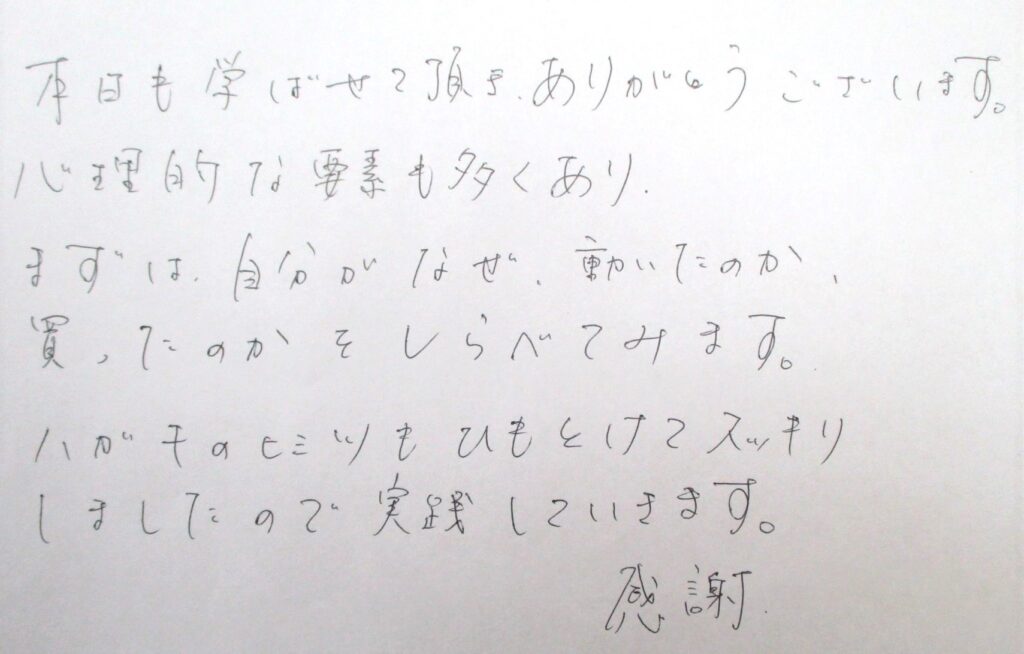 本日も学ばせて頂き、ありがとうございます。
心理的な要素も多くあり、
まずは、自分がなぜ、動いたのか、
買ったのかをしらべてみます。
ハガキのヒミツもひもとけてスッキリ
しましたので実践していきます。
感謝